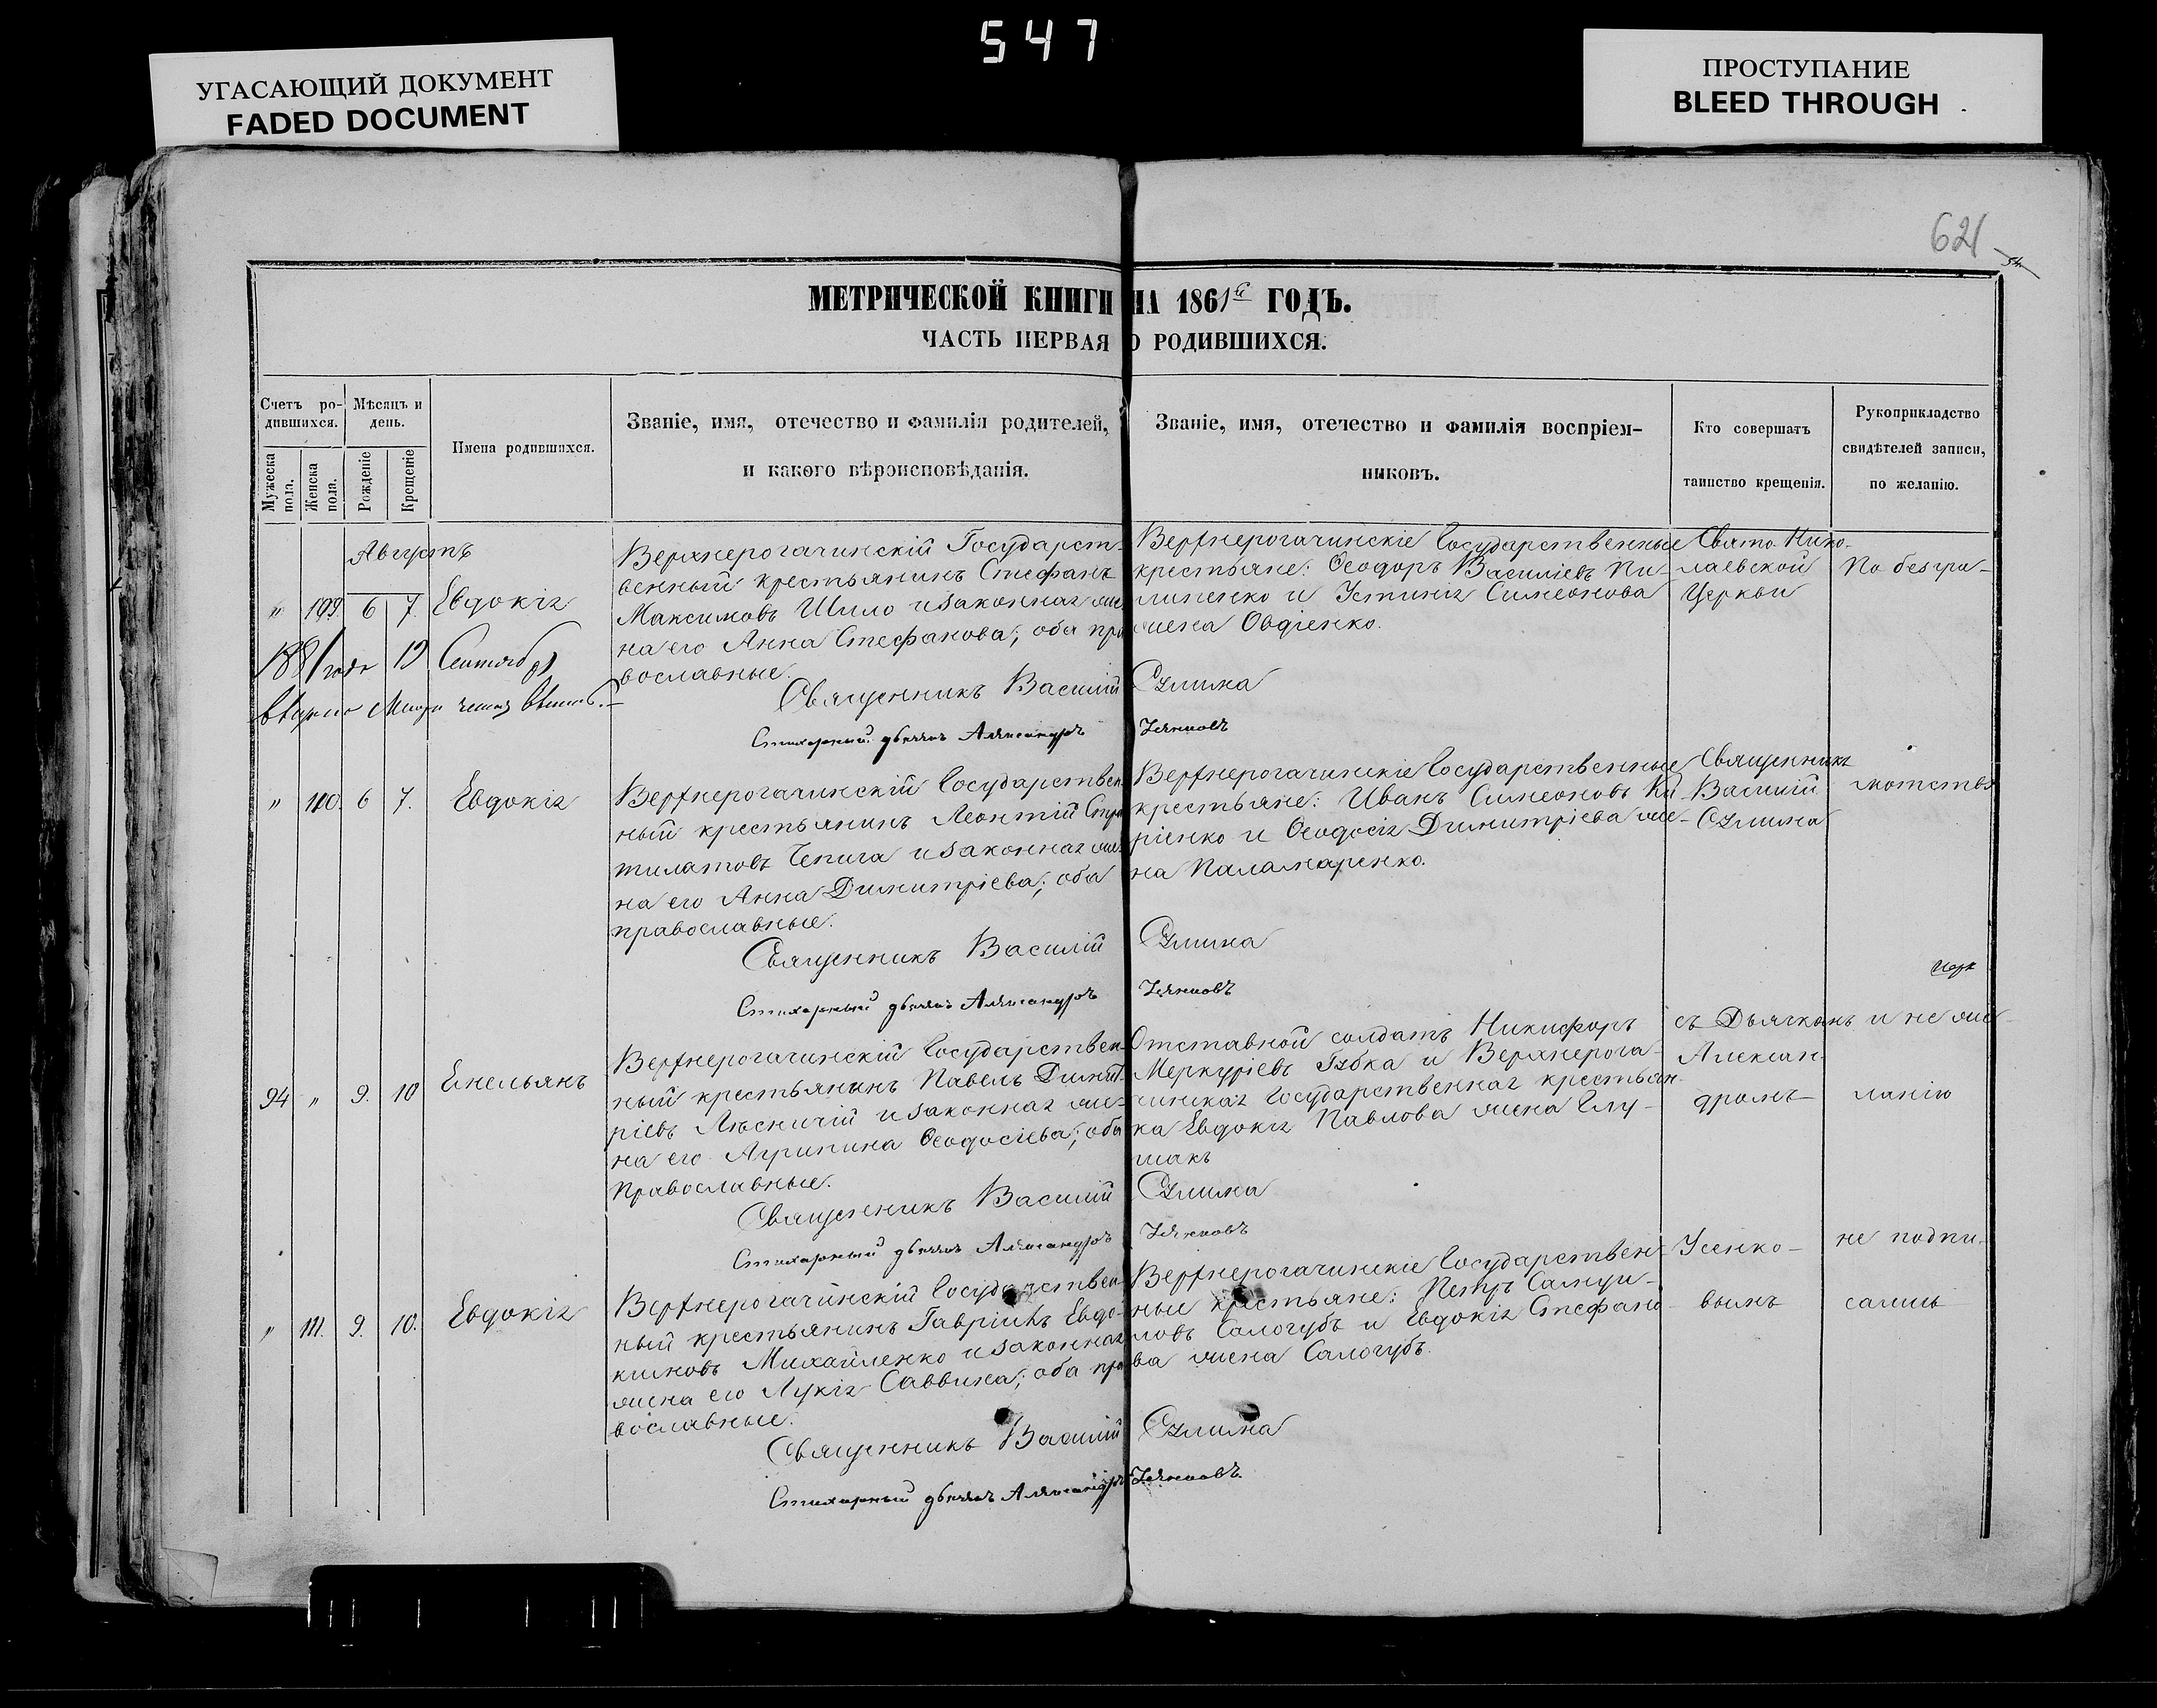 547
УГАСАЮЩИЙ ДОКУМЕНТ
FADED DOCUMENT
ПРОСТУПАНИЕ
BLEED THROUGH
621
МЕТРИЧЕСКОЙ КНИГИ НА 1861й ГОДЪ.
ЧАСТЬ ПЕРВАЯ О РОДИВШИХСЯ.
Счетъ ро-
дившихся.
Мужеска пола.
Женска пола.
Мѣсяцъ и
день.
Рожденіе
Крещеніе
Имена родившихся.
Званіе, имя, отечество и фамилія родителей,
и какого вѣроисповѣданія.
Званіе, имя, отечество и фамилія воспріем-
никовъ.
Кто совершатъ
таинство крещенія.
Рукоприкладство
свидѣтелей записи,
по желанію.
Августъ
" 109. 6 7. Евдокія
Верхнерогачинскій Государст-
венный крестьянинъ Стефанъ
Максимовъ Шило и законная же
на его Анна Стефанова; оба пра
вославные.
Верхнерогачинскіе Государственные
крестьяне: Ѳеодоръ Василіевъ Пи-
липенко и Устинія Симеонова
жена Овдіенко.
Свято-Нико-
лаевской
Церкви
По безгра-
1881 года 19 Сентября
Священникъ Василій Слима
Стихарный дьячокъ Александръ
" 110. 6 7. Евдокія
Верхнерогачинскій Государствен
ный крестьянинъ Леонтій Стра
тилатовъ Чепига и законная же
на его Анна Димитріева; оба
православные.
Верхнерогачинскіе Государственные
крестьяне: Иванъ Симеоновъ Ки
ріенко и Ѳеодосія Димитріева же-
на Паламаренко.
Священникъ
Василій
Слима
мотству
Священникъ Василій Слима
Стихарный дьячокъ Александръ
94 " 9. 10 Емельянъ
Верхнерогачинскій Государствен-
ный крестьянинъ Павелъ Димит-
ріевъ Лѣсничій и законная же-
на его Агрипина Ѳеодосіева; оба
Православные.
Отставной солдатъ Никифоръ
Меркуріевъ Губка и Верхнерога-
чинская Государственная крестьян-
ка Евдокія Павлова жена Глу-
шакъ
съ Дьячкомъ
Алексан-
дромъ
и не же-
ланію
Священникъ Василій Слима
Стихарный дьячокъ Александръ
" 111. 9. 10. Евдокія
Верхнерогачинскій Государствен-
ный крестьянинъ Гавріилъ Евдо-
кимовъ Михайленко и законная
жена его Лукія Саввина; оба пра
вославные.
Верхнерогачинскіе Государствен-
ные крестьяне: Петръ Самуи-
ловъ Салогубъ и Евдокія Стефано
ва жена Салогубъ.
Усенко-
вымъ
не подпи-
сались
Священникъ Василій Слима
Стихарный дьячокъ Александръ